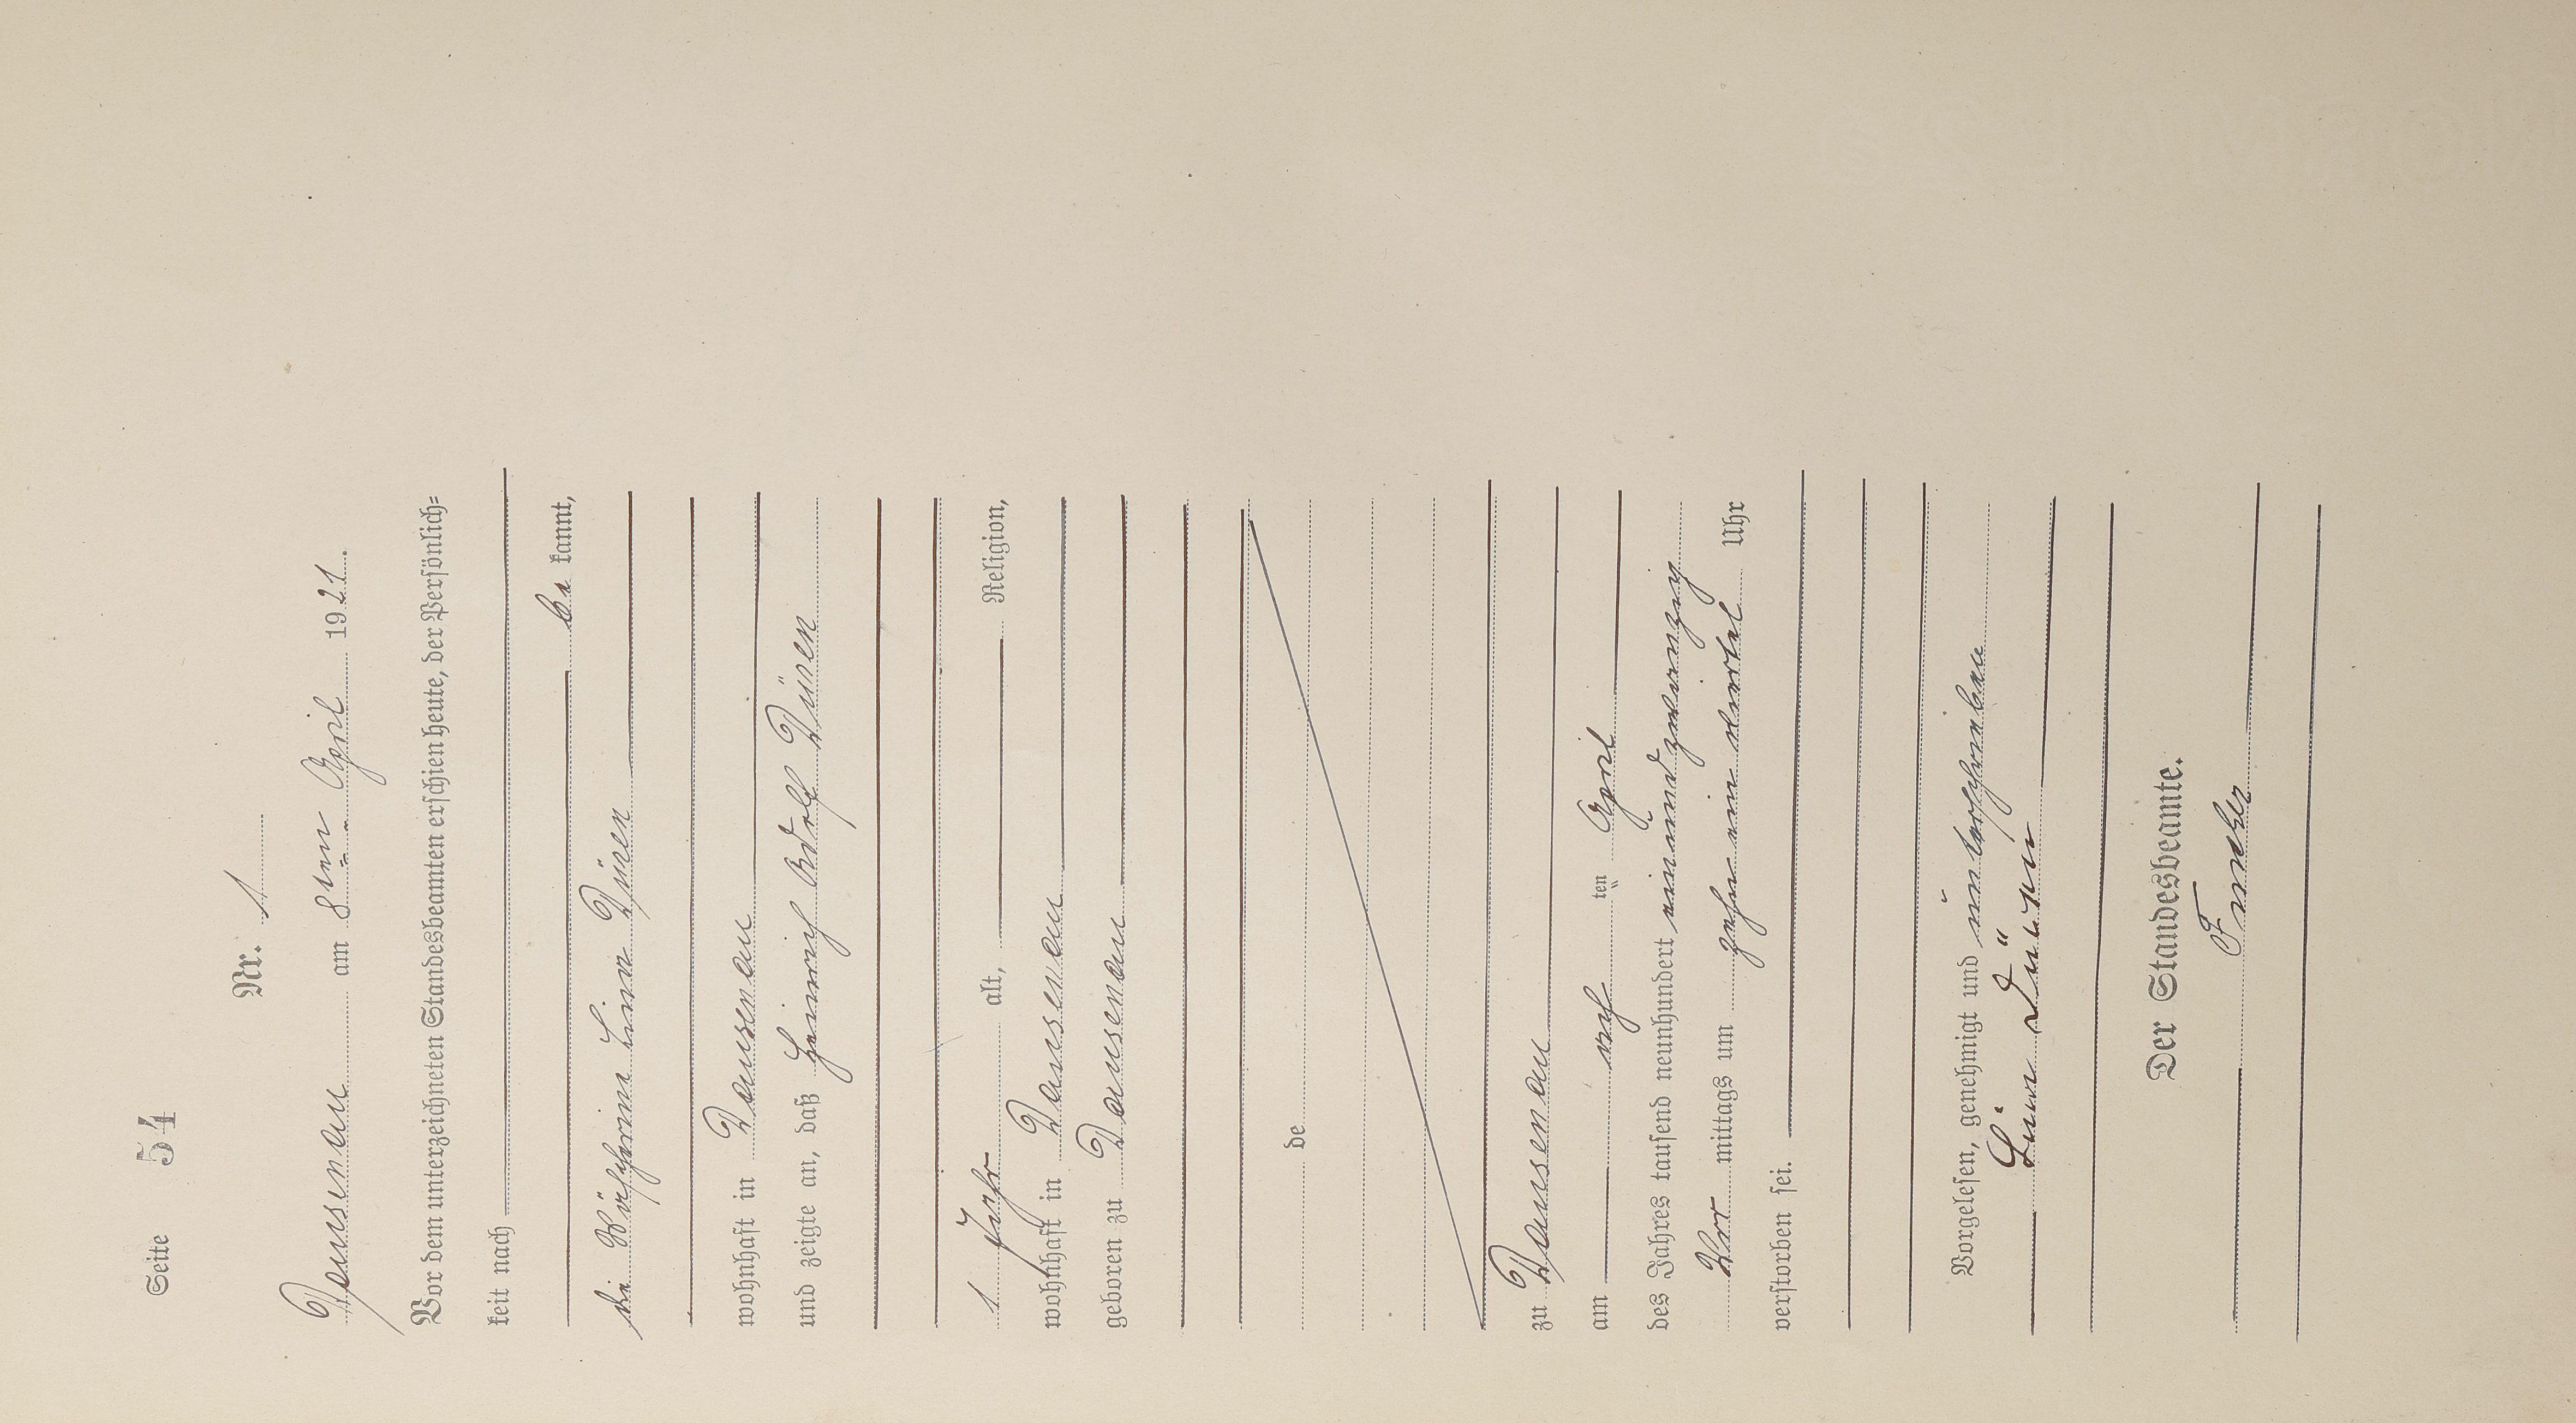 Seite 54
Nr. 1
Dausenau am 8ten April 1921.
Vor dem unterzeichneten Standesbeamten erschien heute, der Persönlich-
keit nach
be kannt,
die Wäscherin Lina Düren
wohnhaft in Dausenau
und zeigte an, daß Heinrich Adolf Düren
1 Jahr alt, Religion,
wohnhaft in Dausenau
geboren zu Dausenau
de
zu Dausenau
am acht ten April
des Jahres tausend neunhundert einundzwanzig
Vor mittags um zehn ein viertel Uhr
verstorben sei.
Vorgelesen, genehmigt und unterschrieben
Lina Düren
Der Standesbeamte.